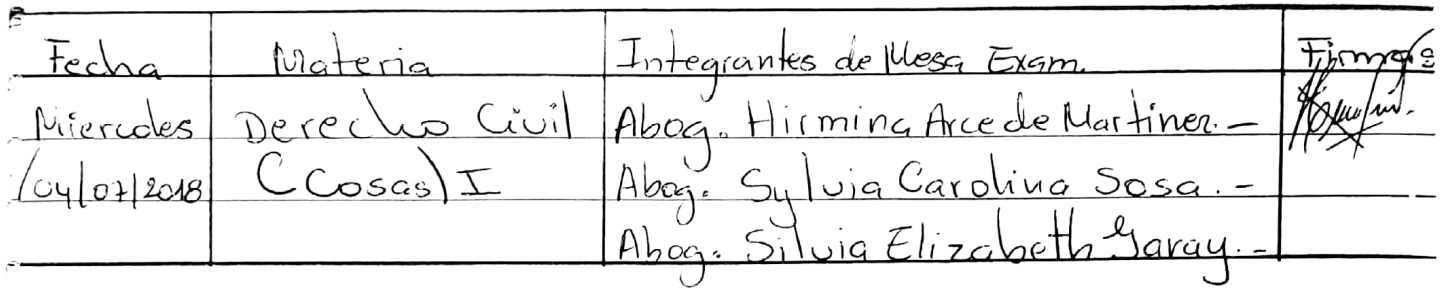 Fecha Materia Integrantes de Mesa Exam. Firmas
Miercoles Derecho Civil Abog. Hirmina Arce de Martinez. -
/04/07/2018 (Cosas) I Abog. Sylvia Carolina Sosa. -
Abog. Silvia Elizabeth Garay. -